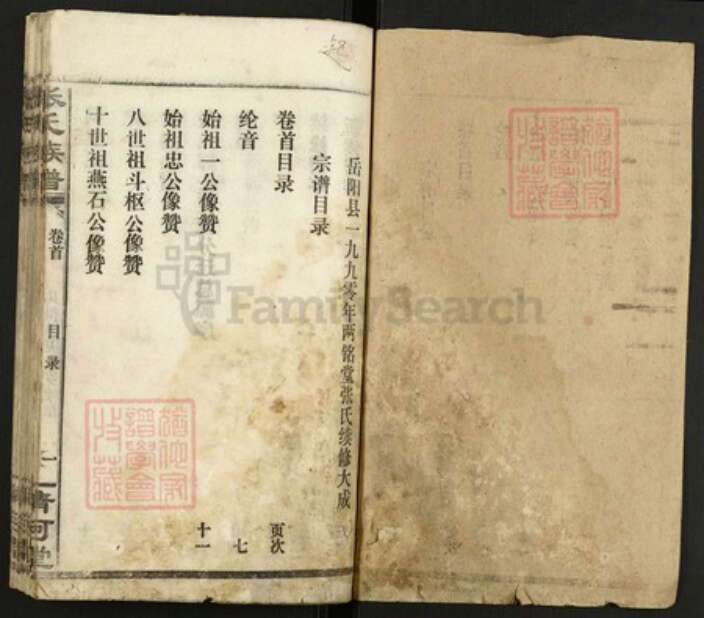 岳阳县一九九零年两铭堂张氏续修大成
宗谱目录
卷首目录 页次
纶音 七
始祖一公像赞 十一
始祖忠公像赞
八世祖斗枢公像赞
十世祖燕石公像赞
张氏族谱 卷首 目录 一
FamilySearch